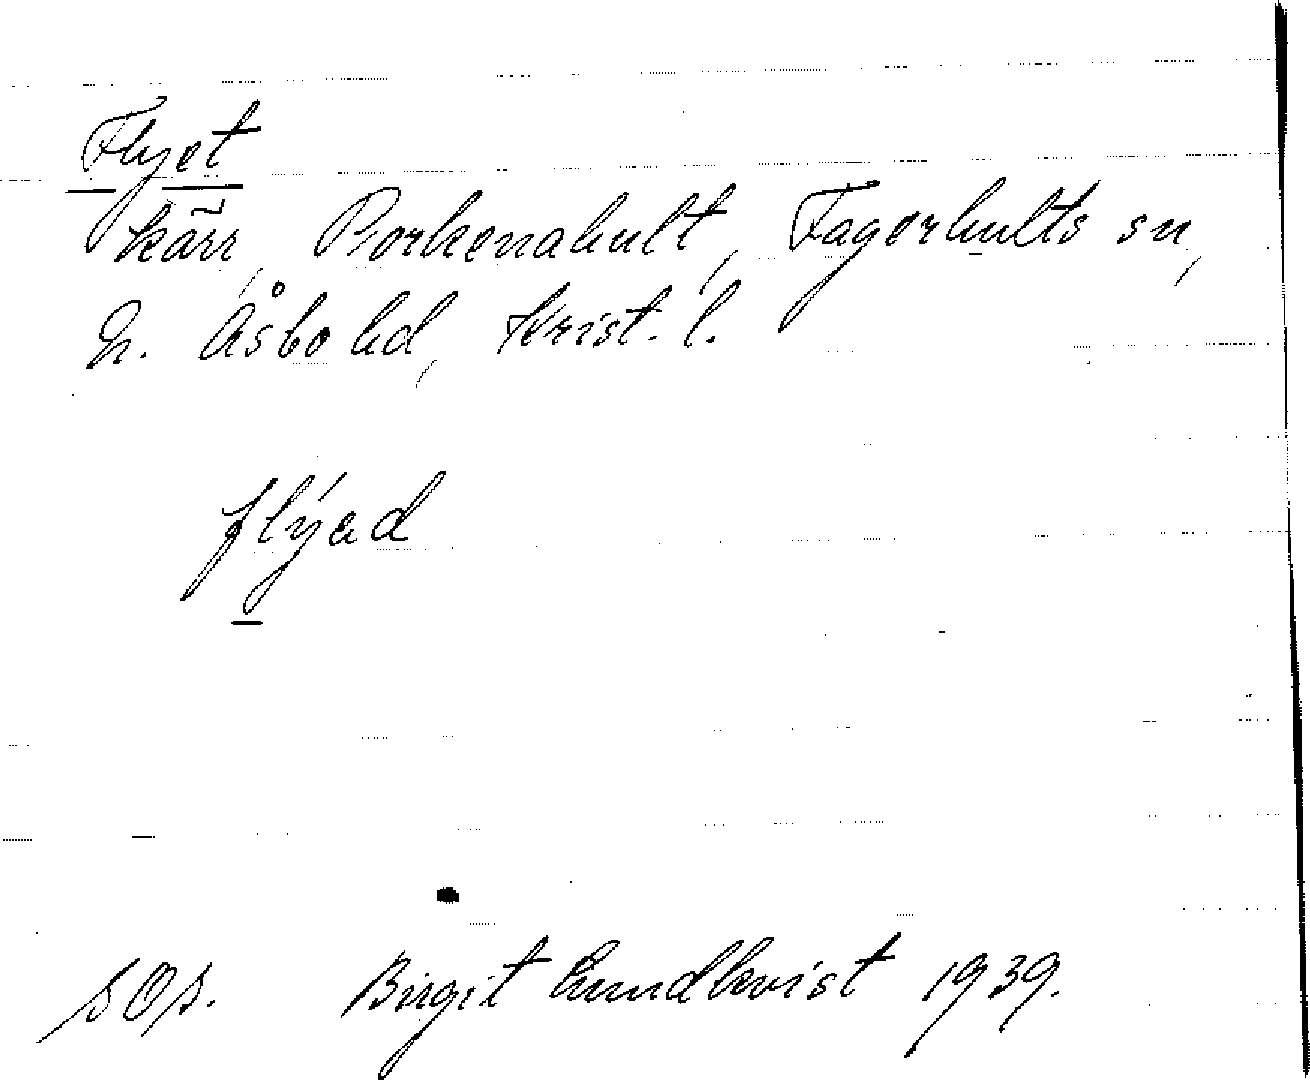 Flyet
kärr, Porkenahult, Fagerhults sn,
N. Åsbo hd, Krist. l.
flýad
sOp. Birgit Lundkvist 1939.